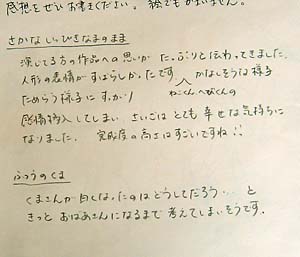 感想をぜひお書きください。絵でもかまいません。
さかな しっぴきなまのまま
演じてる方の作品への思いが たっぷりと伝わってきました。
人形の表情がすばらしかったです かなしそうな様子
ためらう様子に すっかり ねこくん、へびくんの
感情移入してしまい さいごは とても 幸せな気持ちに
なりました。 完成度の高さはすごいですね!!
ふつうのくま
くまさんが白くなったのは どうしてだろう… と
きっと おばあさんになるまで 考えてしまいそうです.